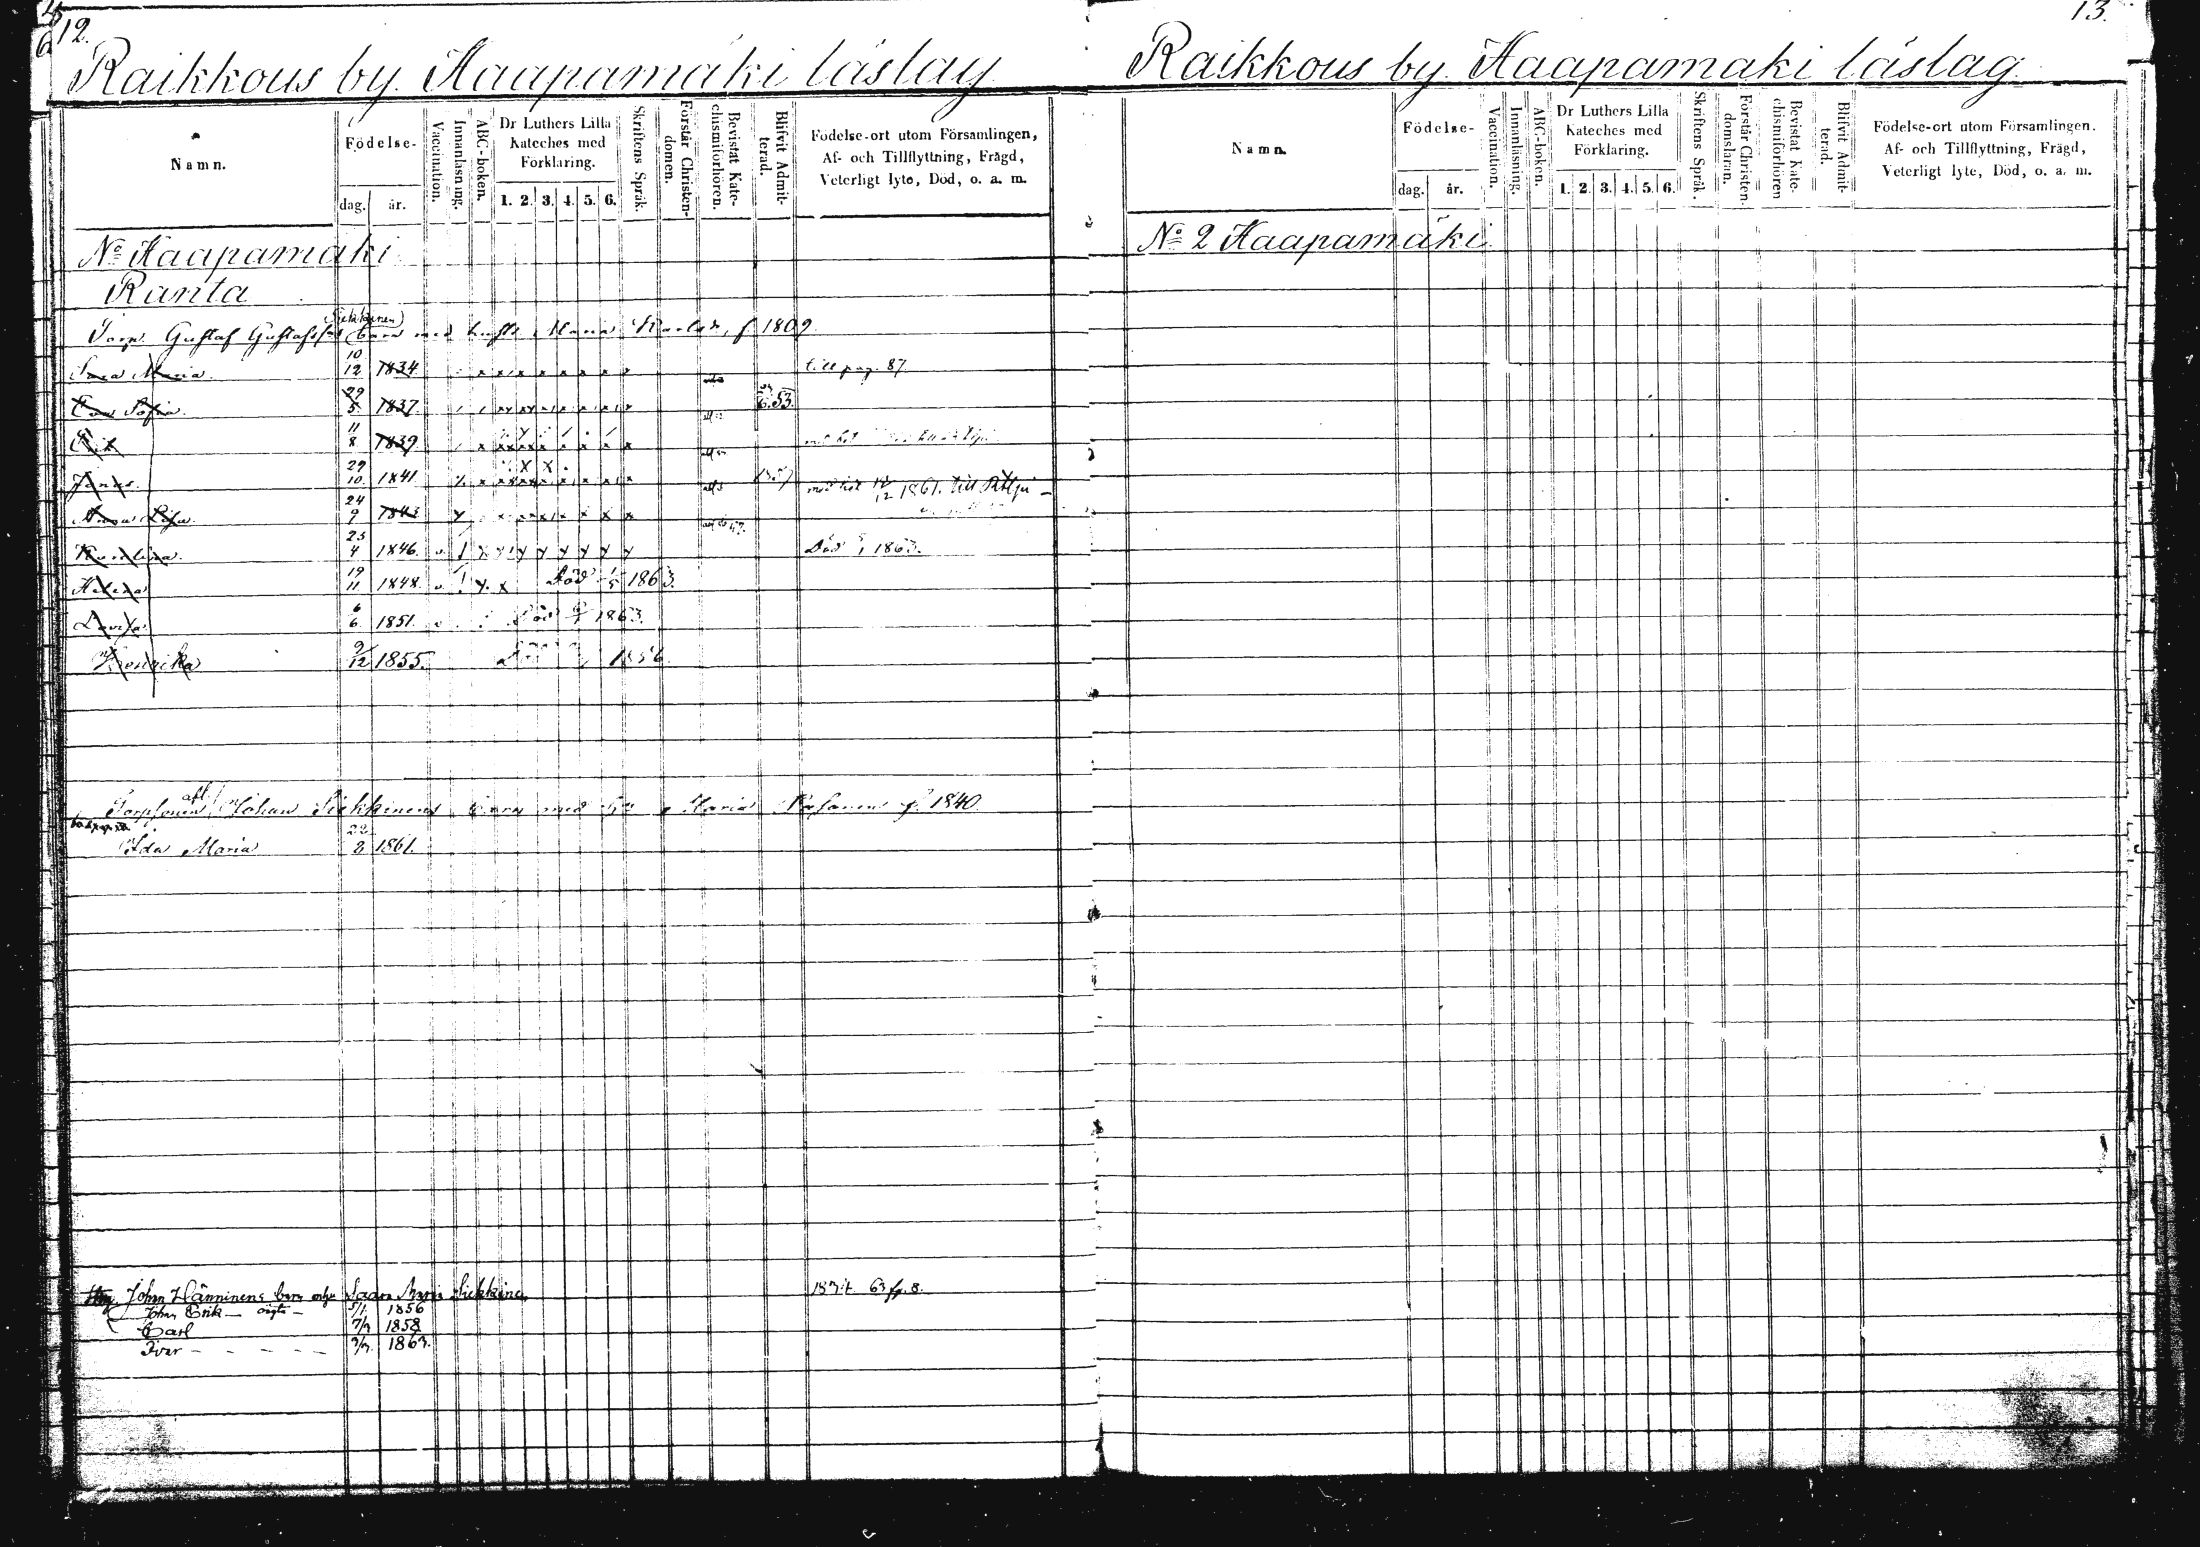 12.
Raikkous by. Haapamäki läslag
Namn.
Födelse-
dag.
år.
Vaccination.
Innanläsning.
ABC-boken.
Dr Luthers Lilla Kateches med Förklaring.
1. 2. 3. 4. 5. 6.
Skriftens Språk.
Förstår Christendomen.
Bevistat Katechismiförhören.
Blifvit Admitterad.
Födelse-ort utom Församlingen,
Af- och Tillflyttning, Frägd,
Veterligt lyte, Död, o. a. m.
No Haapamäki
Ranta
Torp. Gustaf Gustafsson (Siekkinen) barn med hust. Maria f. 1809
Maria 10/12 1834 till pag. 87
Eva Sofia 29/5 1837 53
Erik 11/8 1839
Jonas 29/10 1841 1861 till
Anna Lisa 24/9 1843
Karolina 25/4 1846 Död 1863.
Helena 19/11 1848 Död 1/5 1863.
Lovisa 6/6 1851 Död 1863.
Henrika 9/12 1855. 1856
Torpsonen afl. Johan Siekkinens barn med Maria f. 1840
Ida Maria 22/8 1861.
John Hänninens barn Saara Maria Siekkinen 63 pg. 8.
John Erik 5/1 1856
Carl 7/3 1858
Ivar - - - - - 1863.
13.
Raikkous by. Haapamaki läslag
Namn.
Födelse-
dag.
år.
Vaccination.
Innanläsning.
ABC-boken.
Dr Luthers Lilla Kateches med Förklaring.
1. 2. 3. 4. 5. 6.
Skriftens Språk.
Förstår Christendomsläran.
Bevistat Katechismiförhören
Blifvit Admitterad.
Födelse-ort utom Församlingen.
Af- och Tillflyttning, Frägd,
Veterligt lyte, Död, o. a. m.
No 2 Haapamäki